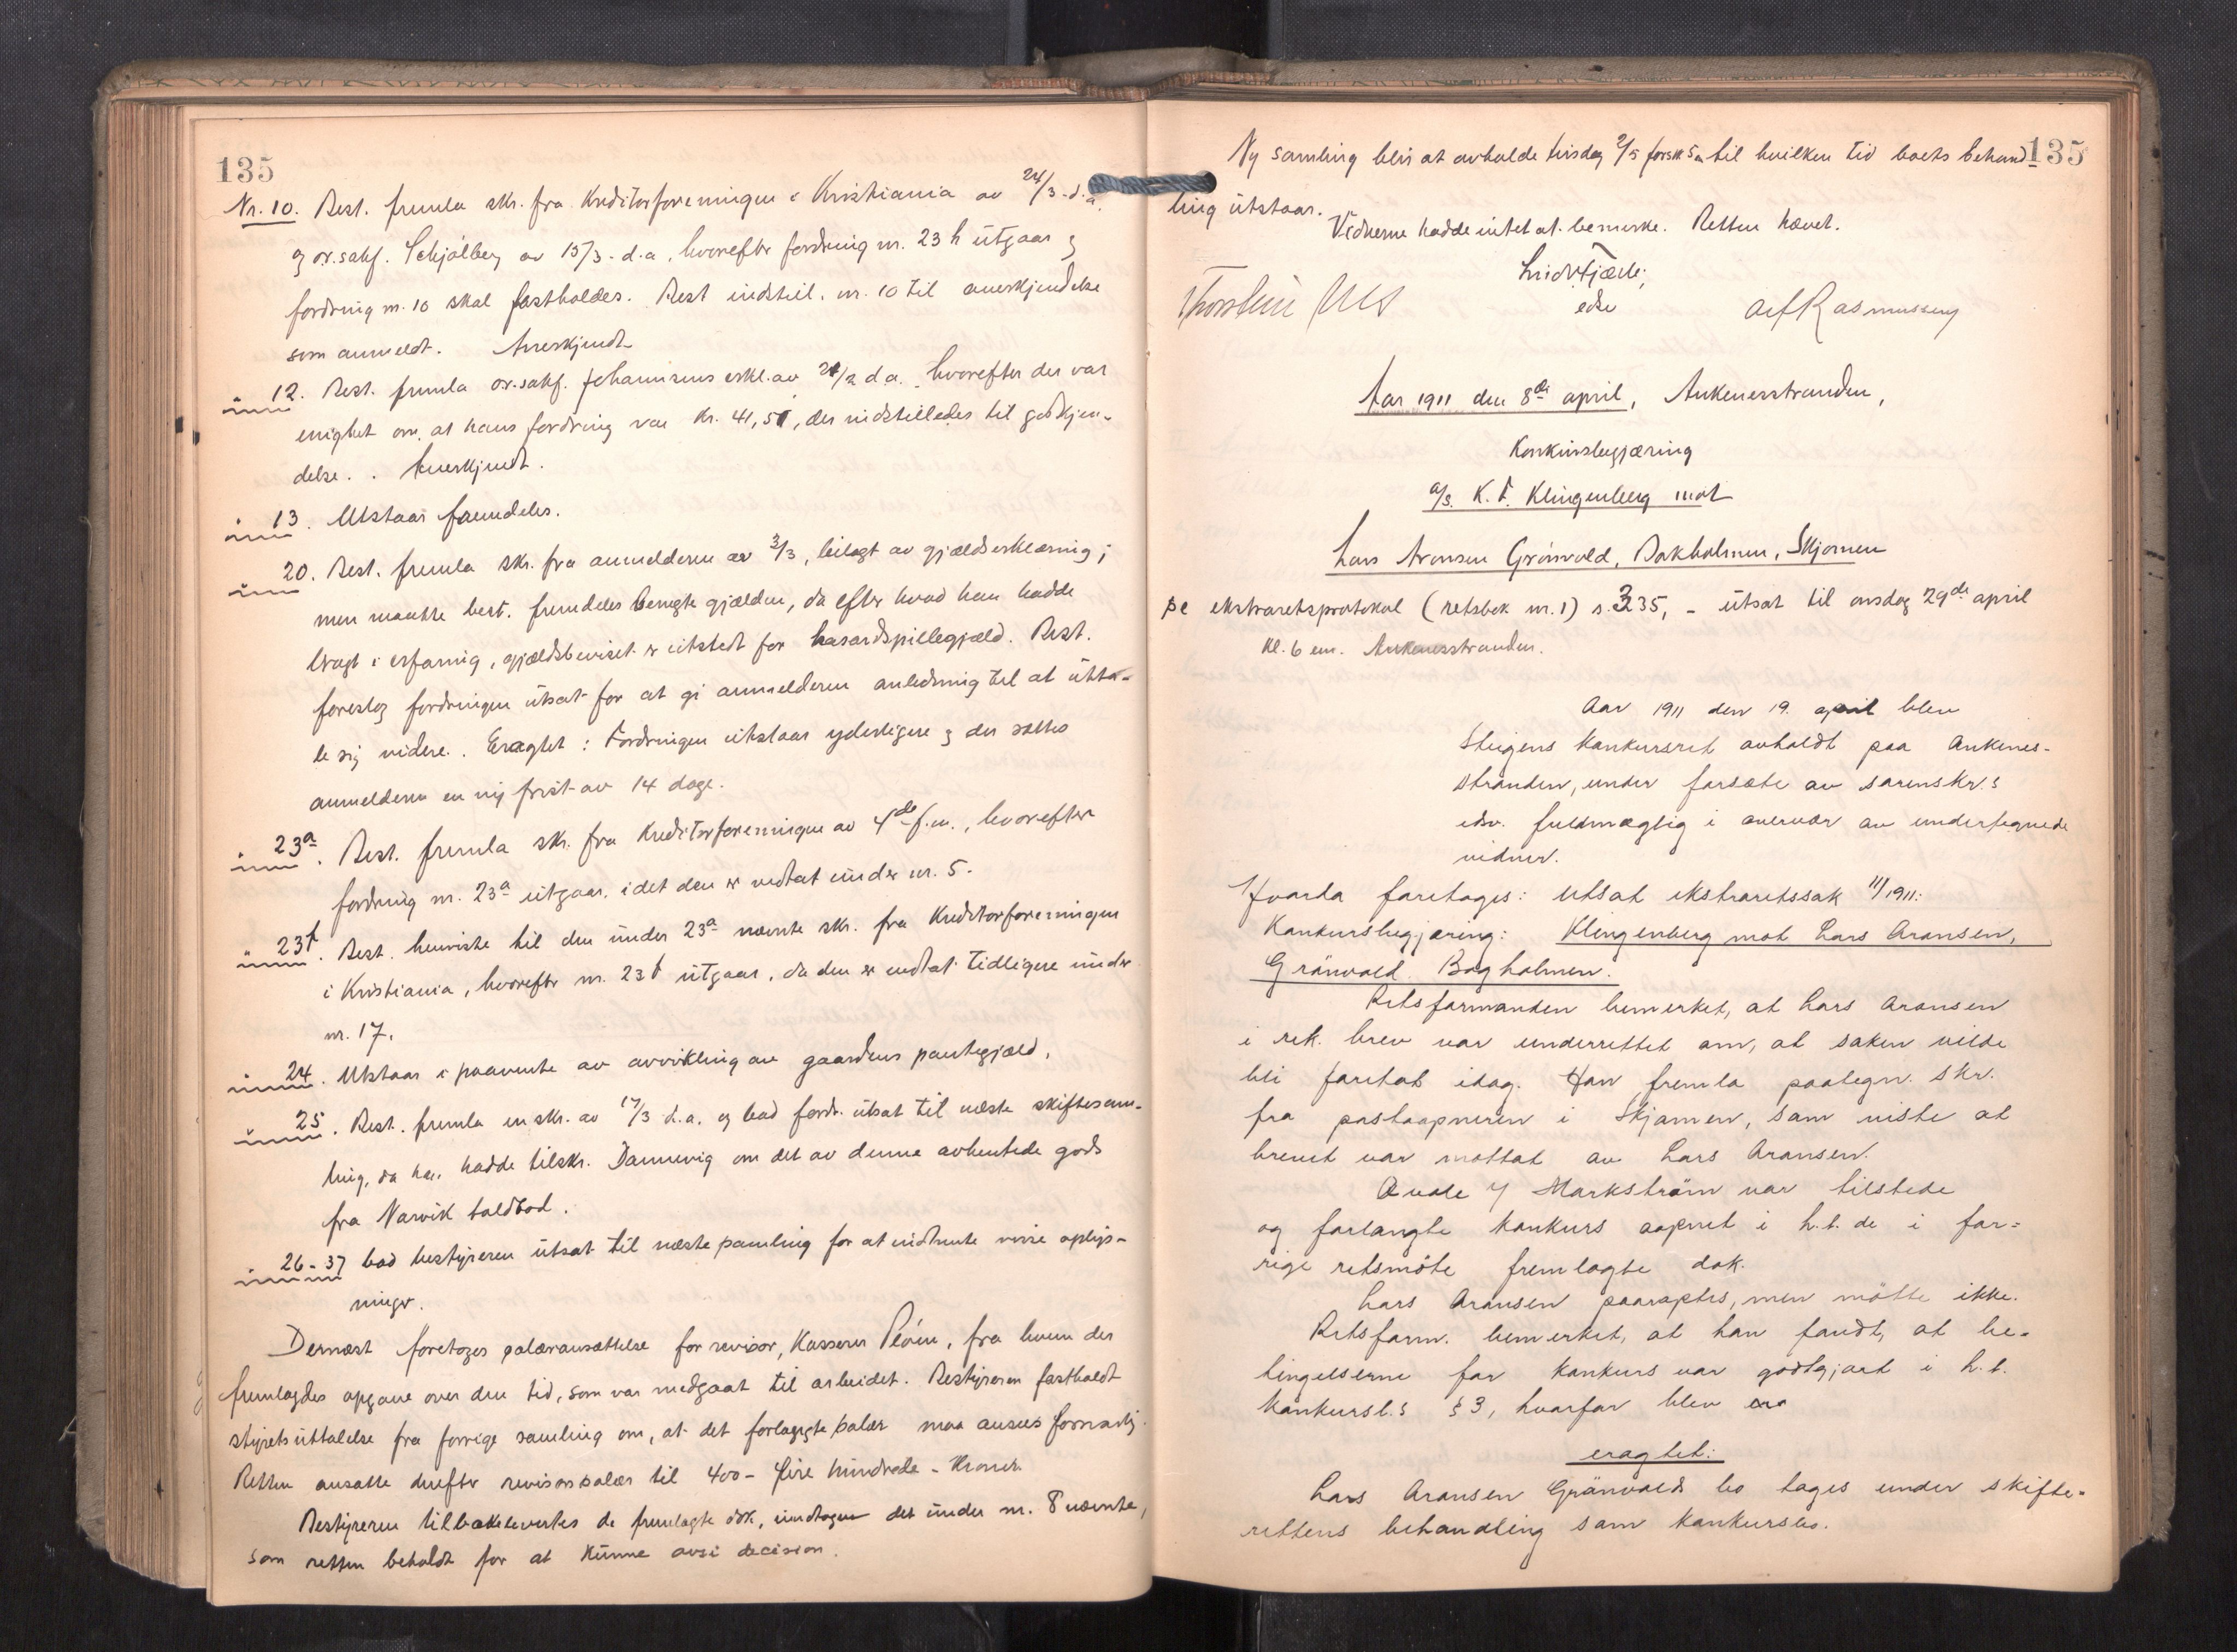 135
Nr. 10. Best. fremla skr. fra Kreditorforeningen i Kristiania av 24/3 d.a.
og or.sakf. Schjølberg av 15/3 d.a., hvorefter fordring nr. 23 h utgaar og
fordring nr. 10 skal fastholdes. Best indstill. nr. 10 til anerkjendelse
som anmeldt. Anerkjendt
" 12. Best. fremla or.sakf. Johannsens erkl. av 24/2 d.a. hvorefter der var
enighet om, at hans fordring var kr. 41,51, der indstilledes til godkjen-
delse. Anerkjendt.
" 13. Utstaar fremdeles.
" 20. Best. fremla skr. fra anmelderen av 3/3, bilagt av gjældserklæring;
men maatte best. fremdeles benegte gjælden, da efter hvad han hadde
bragt i erfaring, gjældsbeviset er utstedt for hasardspillegjæld. Best.
foreslog fordringen utsat for at gi anmelderen anledning til at utta-
le sig videre. Eragtet: Fordringen utstaar yderligere og der sættes
anmelderen en ny frist av 14 dage.
" 23a. Best. fremla skr. fra Kreditorforeningen av 4de f.m., hvorefter
fordring nr. 23a utgaar, idet den er medtat under nr. 5.
" 23f. Best. henviste til den under 23a nævnte skr. fra Kreditorforeningen
i Kristiania, hvorefter nr. 23f utgaar, da den er medtat tidligere under
nr. 17.
" 24. Utstaar i paavente av avvikling av gaardens pantegjæld.
" 25. Best. fremla en skr. av 17/3 d.a. og bad fordr. utsat til næste skiftesam-
ling, da han hadde tilskr. Dannevig om det av denne avhentede gods
fra Narvik toldbod.
" 26-37 bad bestyreren utsat til næste samling for at indhente visse oplys-
ninger.
Dernæst foretoges salæransættelse for revisor, Kasserer, fra hvem der
fremlagdes opgave over den tid, som var medgaat til arbeidet. Bestyreren fastholdt
styrets uttalelse fra forrige samling om, at det forlangte salær maa ansees
Retten ansatte derefter revisors salær til 400 - fire hundrede - Kroner.
Bestyreren tilbakelevertes de fremlagte dok., undtagen det under nr. 8 nævnte,
som retten beholdt for at kunne avsi decision.
135
Ny samling blir at avholde tirsdag 2/5 førstk 5 em til hvilken tid boets behand-
ling utstaar.
Vidnerne hadde intet at bemerke. Retten hævet.
Lindtfjæld;
edsv
Thorstein Alf Rasmussen
Aar 1911 den 8de april, Ankenesstranden,
Konkursbegjæring
A/S. K. F. Klingenberg mot
Lars Aronsen Grönvold, Bakholmen, Skjomen
se ekstraretsprotokol (retsbok nr. 1) s. 335, - utsat til onsdag 29de april
kl. 6 em. Ankenesstranden.
Aar 1911 den 19. april blev
Steigens konkursret avholdt paa Ankenes-
stranden, under forsæte av sorenskr.s
edsv. fuldmægtig i overvær av undertegnede
vidner.
Hvorda foretoges: utsat ekstraretssak 11/1911:
Konkursbegjæring: Klingenberg mot Lars Aronsen,
Grönvold Bogholmen.
Retsformanden bemerket, at Lars Aronsen
i rek. brev var underrettet om, at saken vilde
bli foretat idag. Han fremla paategn. skr.
fra postaapneren i Skjomen, som viste at
brevet var mottat av Lars Aronsen.
Qvale v/ Markström var tilstede
og forlangte konkurs aapnet i h.t. de i for-
rige retsmöte fremlagte dok.
Lars Aronsen paaroptes, men mötte ikke.
Retsform. bemerket, at han fandt, at be-
tingelserne for konkurs var godtgjort i h.t.
konkursl.s § 3, hvorfor blev
eragtet:
Lars Aronsen Grönvolds bo tages under skifte-
rettens behandling som konkursbo.